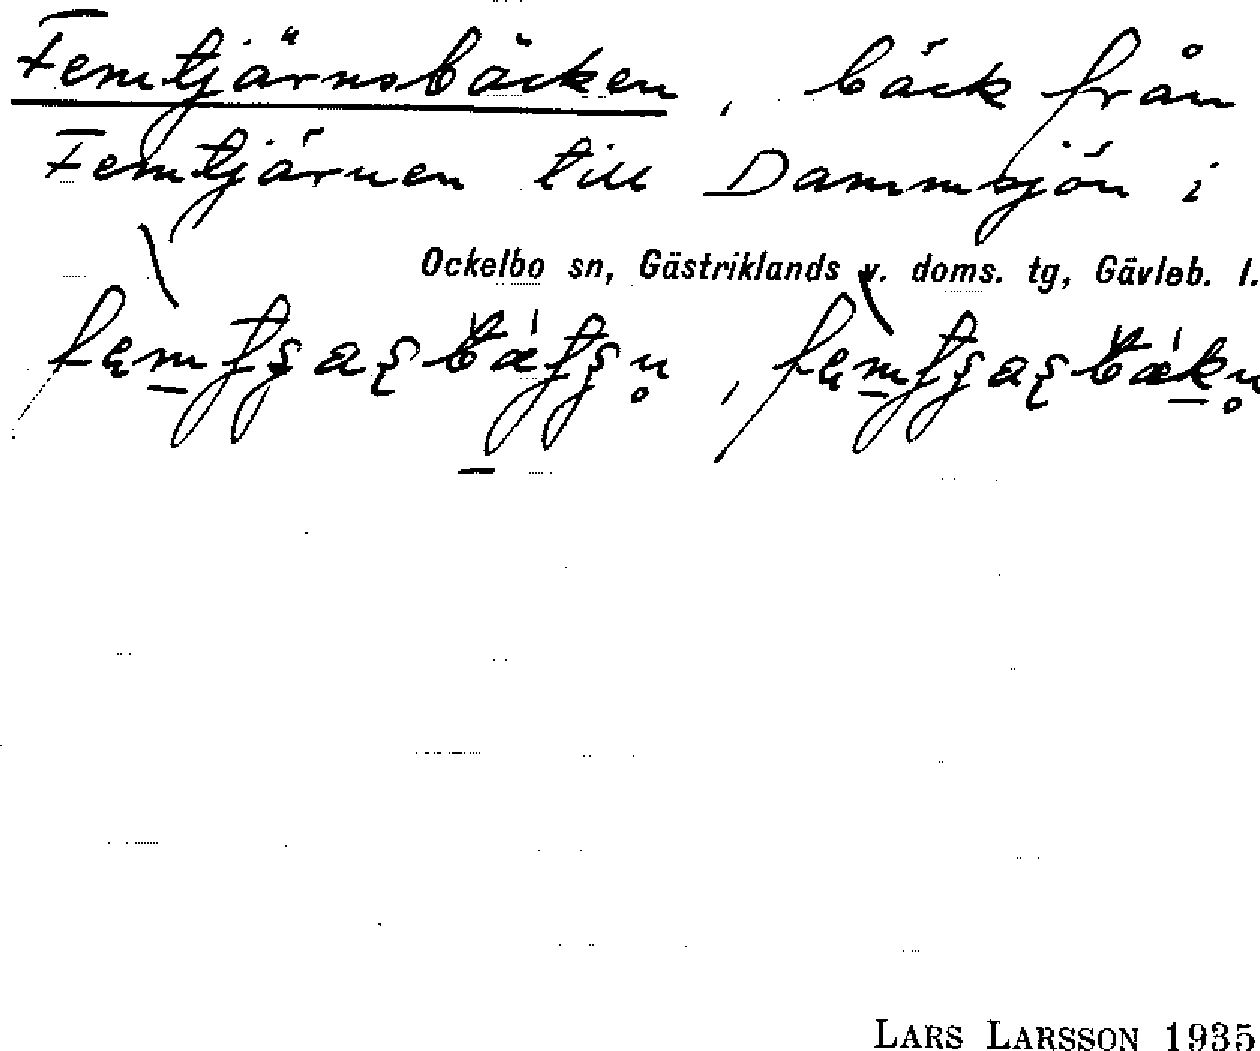 Femtjärnsbäcken, bäck från
Femtjärnen till Dammsjön i
Ockelbo sn, Gästriklands v. doms. tg, Gävleb. l.
LARS LARSSON 1935